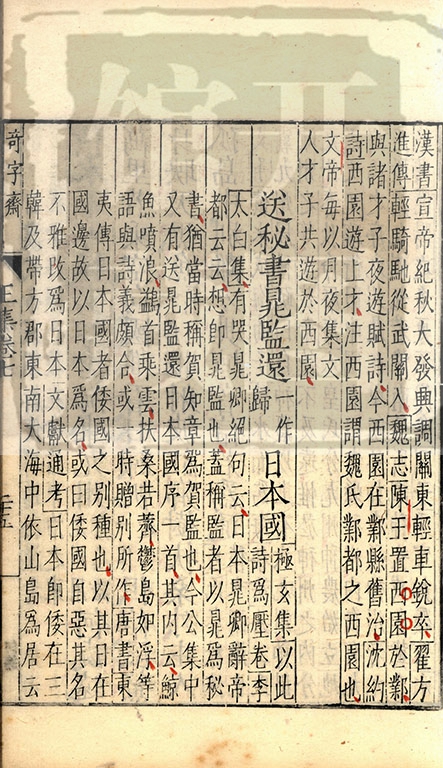 漢書宣帝紀秋大發興調關東輕車銳卒翟方
進傳輕騎馳從武關入魏志陳王置西園於鄴
與諸才子夜遊賦詩今西園在鄴縣舊治沈約
詩西園遊上才注西園謂魏氏鄴都之西園也
文帝每以月夜集文
人才子共遊於西園
送秘書晁監還一作歸日本國極玄集以此詩爲壓卷李
太白集有哭晁卿絕句云日本晁卿辭帝
都云云想即晁監也蓋稱監者以晁爲秘
書猶當時稱賀知章爲賀監也今公集中
又有送晁監還日本國序一首其内云鯨
魚噴浪鷁首乘雲扶桑若薺鬱島如浮等
語與詩義頗合或一時贈別所作唐書東
夷傳日本國者倭國之别種也以其日在
國邊故以日本爲名或曰倭國自惡其名
不雅改爲日本文獻通考日本即倭在三
韓及帶方郡東南大海中依山島爲居云
奇字齋 王集卷七